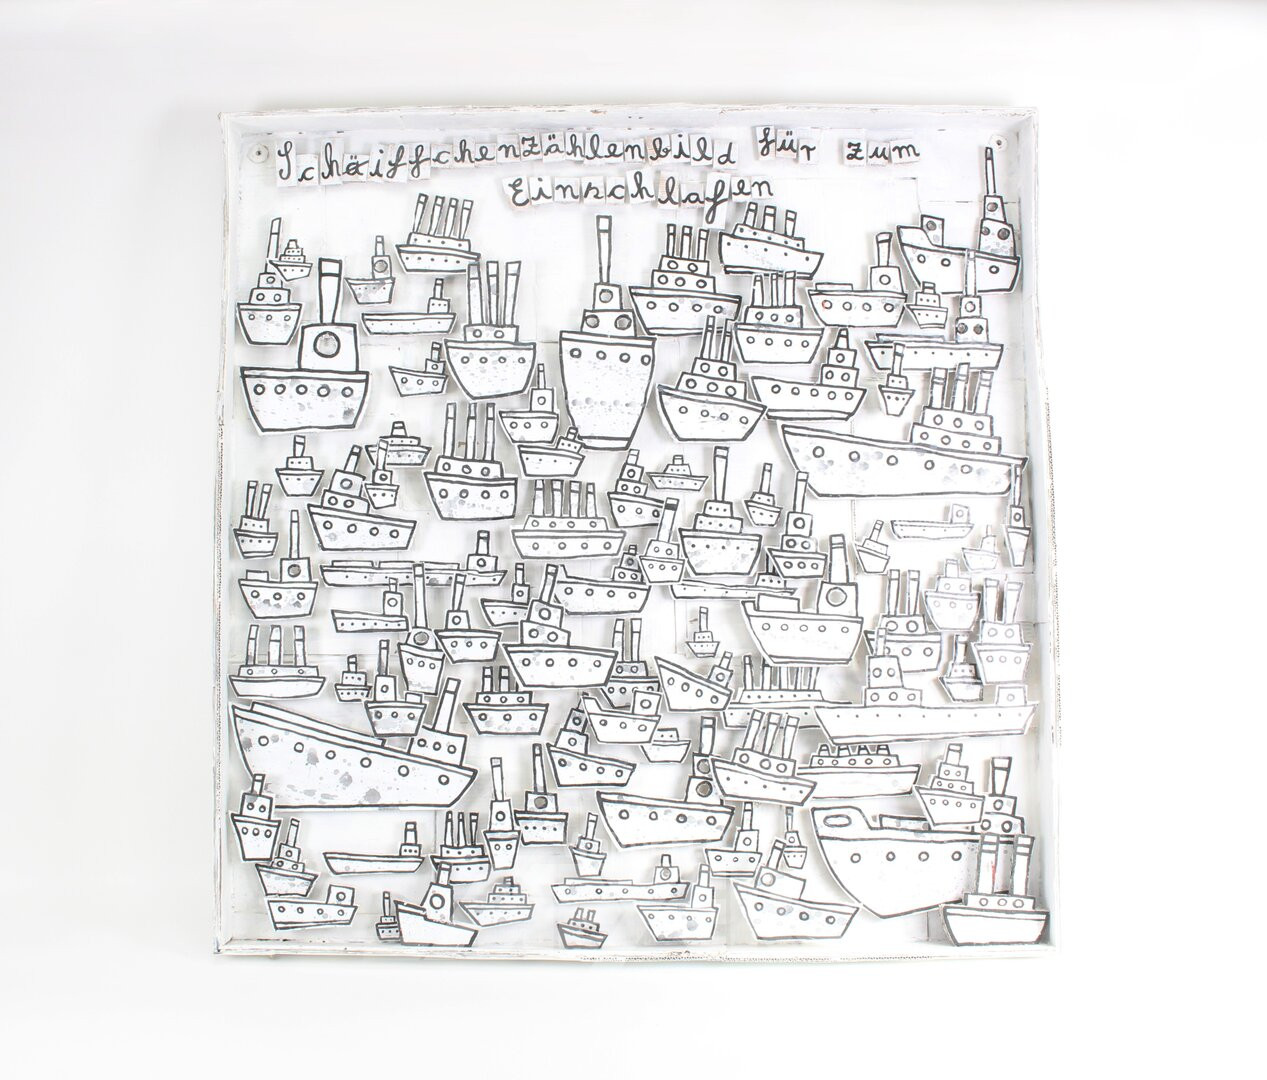 Schäiffchenzählenbild für zum
Einschlafen